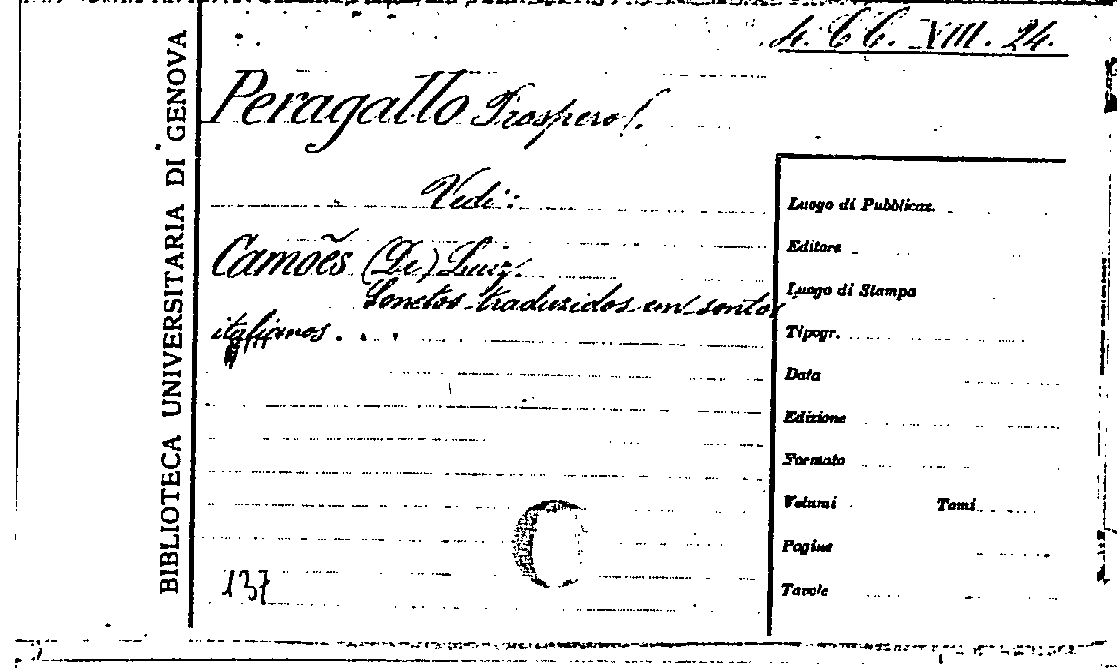 4. CC. XVIII. 24.
BIBLIOTECA UNIVERSITARIA DI GENOVA
Peragallo Prospero.
Vedi:
Camões (De) Luiz.
Sonetos traduzidos em sontos
italianos . . .
137
Luogo di Pubblicaz.
Editore
Luogo di Stampa
Tipogr.
Data
Edizione
Formato
Volumi Tomi
Pagine
Tavole